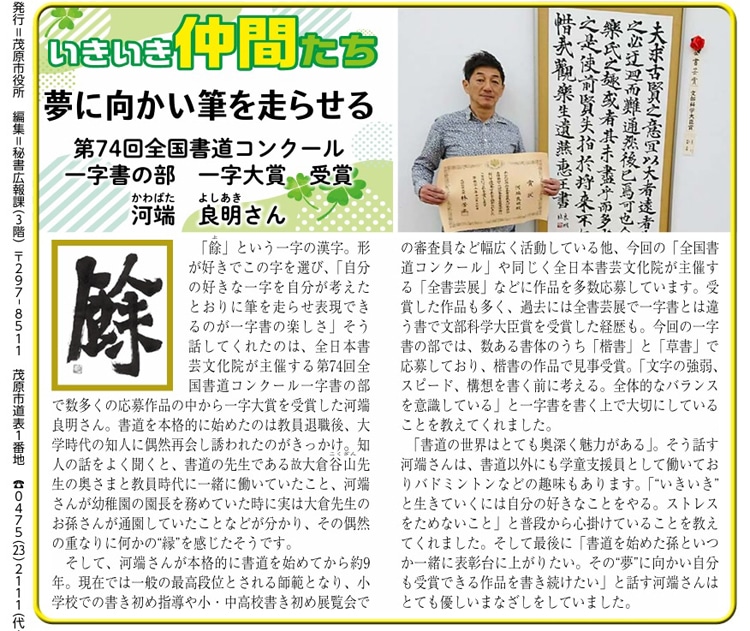 発行＝茂原市役所　編集＝秘書広報課(3階)　〒297-8511　茂原市道表1番地　☎0475(23)2111(代
いきいき仲間たち
夢に向かい筆を走らせる
第74回全国書道コンクール
一字書の部　一字大賞　受賞
かわばた　よしあき
河端　良明さん
夫求古賢之意宜以大者遠者
之必迂迴而難通然後已焉可也
樂氏之趣或者其未盡乎而多
之是使前賢失指於将来不
惜哉觀樂生遺燕惠王書
文部科学大臣賞
賞状
餘
「餘」という一字の漢字。形
が好きでこの字を選び、「自分
の好きな一字を自分が考えた
とおりに筆を走らせ表現でき
るのが一字書の楽しさ」そう
話してくれたのは、全日本書
芸文化院が主催する第74回全
国書道コンクール一字書の部
で数多くの応募作品の中から一字大賞を受賞した河端
良明さん。書道を本格的に始めたのは教員退職後、大
学時代の知人に偶然再会し誘われたのがきっかけ。知
人の話をよく聞くと、書道の先生である故大倉谷山先
生の奥さまと教員時代に一緒に働いていたこと、河端
さんが幼稚園の園長を務めていた時に実は大倉先生の
お孫さんが通園していたことなどが分かり、その偶然
の重なりに何かの“縁”を感じたそうです。
　そして、河端さんが本格的に書道を始めてから約9
年。現在では一般の最高段位とされる師範となり、小
学校での書き初め指導や小・中高校書き初め展覧会で
の審査員など幅広く活動している他、今回の「全国書
道コンクール」や同じく全日本書芸文化院が主催す
る「全書芸展」などに作品を多数応募しています。受
賞した作品も多く、過去には全書芸展で一字書とは違
う書で文部科学大臣賞を受賞した経歴も。今回の一字
書の部では、数ある書体のうち「楷書」と「草書」で
応募しており、楷書の作品で見事受賞。「文字の強弱、
スピード、構想を書く前に考える。全体的なバランス
を意識している」と一字書を書く上で大切にしている
ことを教えてくれました。
　「書道の世界はとても奥深く魅力がある」。そう話す
河端さんは、書道以外にも学童支援員として働いてお
りバドミントンなどの趣味もあります。「“いきいき”
と生きていくには自分の好きなことをやる。ストレス
をためないこと」と普段から心掛けていることを教え
てくれました。そして最後に「書道を始めた孫といつ
か一緒に表彰台に上がりたい。その“夢”に向かい自分
も受賞できる作品を書き続けたい」と話す河端さんは
とても優しいまなざしをしていました。